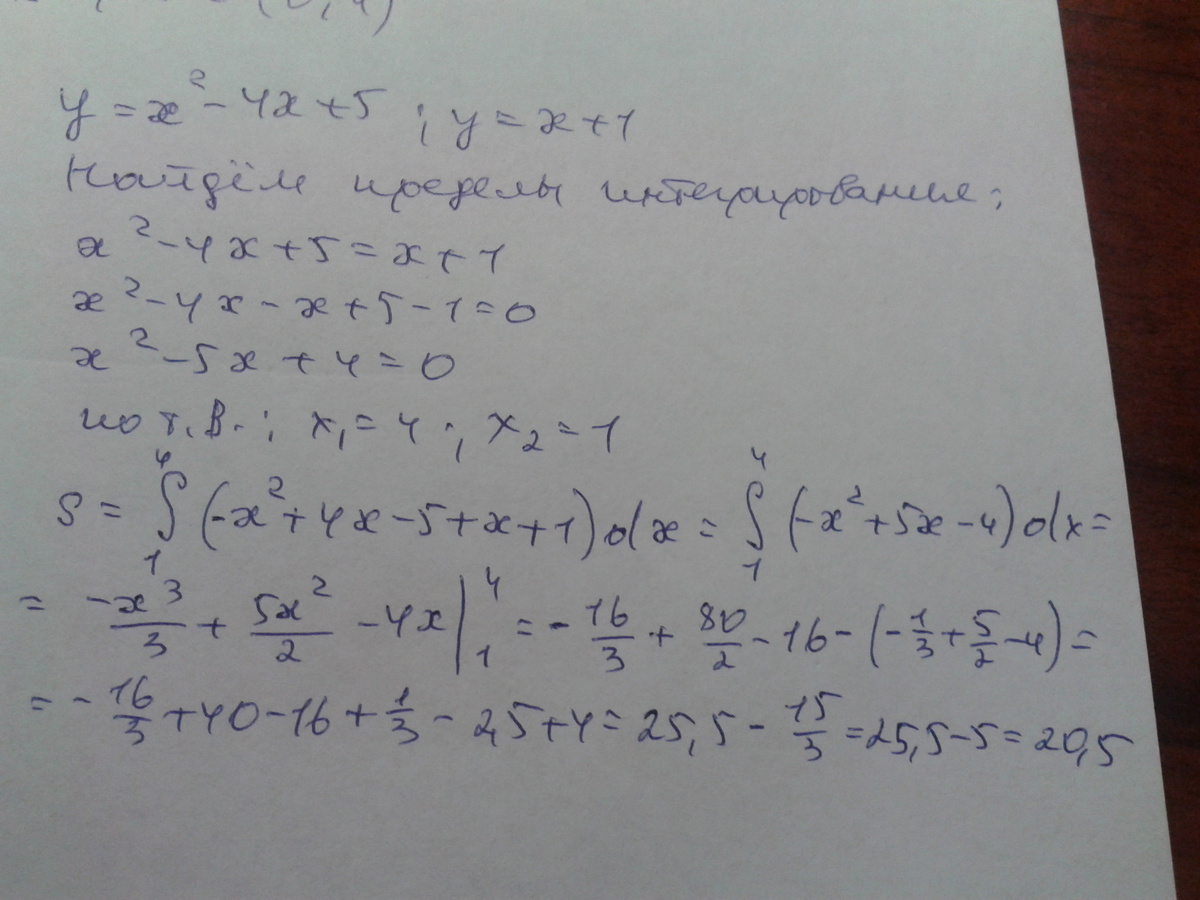 y = x² - 4x + 5 ; y = x + 1
Найдём пределы интегрирования;
x² - 4x + 5 = x + 1
x² - 4x - x + 5 - 1 = 0
x² - 5x + 4 = 0
по т. В.; x₁ = 4 ; x₂ = 1
S = ∫₁⁴ (-x² + 4x - 5 + x + 1) dx = ∫₁⁴ (-x² + 5x - 4) dx =
= -x³/3 + 5x²/2 - 4x |₁⁴ = - 16/3 + 80/2 - 16 - (- 1/3 + 5/2 - 4) =
= - 16/3 + 40 - 16 + 1/3 - 2,5 + 4 = 25,5 - 15/3 = 25,5 - 5 = 20,5